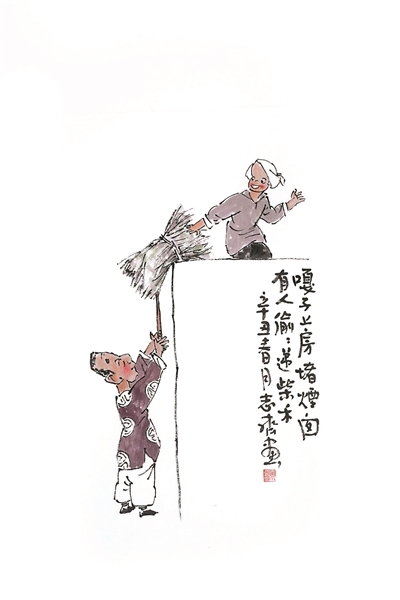 嘎子上房堵煙囱
有人偷〻递柴禾
辛丑春月志齐画